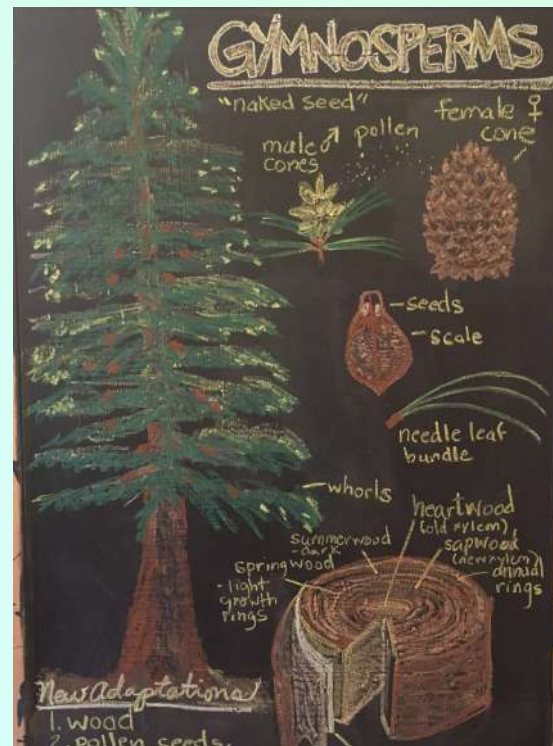 GYMNOSPERMS
"naked seed"
male ♂
cones
pollen
female ♀
cone
seeds
scale
needle leaf
bundle
whorls
heartwood
(old xylem)
sapwood
(new xylem)
annual
rings
summerwood
- dark
springwood
- light
growth
rings
New Adaptations
1. wood
2. pollen seeds.